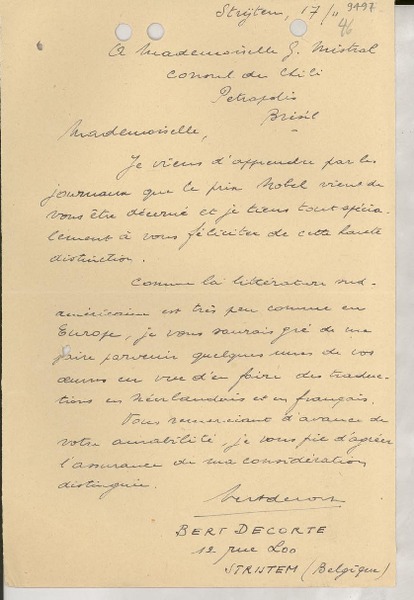 Strijtem, 17/11 9497
46
A Mademoiselle G. Mistral
Consul du Chili
Petropolis
Brésil
Mademoiselle,
Je viens d'apprendre par les
journaux que le prix Nobel vient de
vous être décerné et je tiens tout spécia-
lement à vous féliciter de cette haute
distinction.
Comme la littérature sud-
américaine est très peu connue en
Europe, je vous saurais gré de me
faire parvenir quelques unes de vos
œuvres en vue d'en faire des traduc-
tions en Néerlandais et en français.
Vous remerciant d'avance de
votre amabilité, je vous prie d'agréer
l'assurance de ma considération
distinguée.
Bert Decorte
BERT DECORTE
12 rue Loo
STRIJTEM (Belgique)